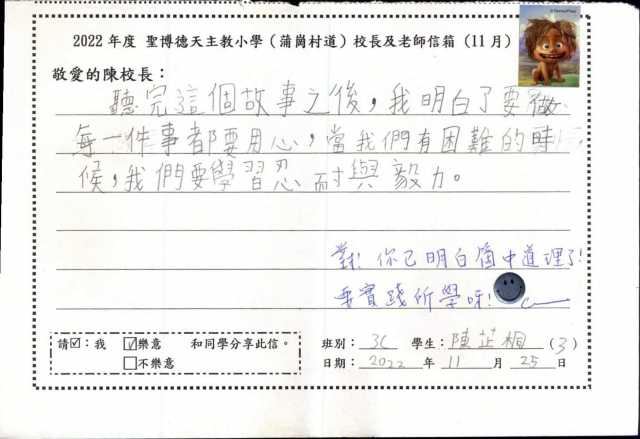 2022 年度 聖博德天主教小學（蒲崗村道）校長及老師信箱（11 月）
敬愛的陳校長：
聽完這個故事之後，我明白了要做
每一件事都要用心，當我們有困難的時
候，我們要學習忍耐與毅力。
對！你已明白箇中道理了！
要實踐所學呀！
請☑：我 ☑樂意 和同學分享此信。
□不樂意
班別：3C 學生：陳芷桐 (3)
日期：2022 年 11 月 25 日